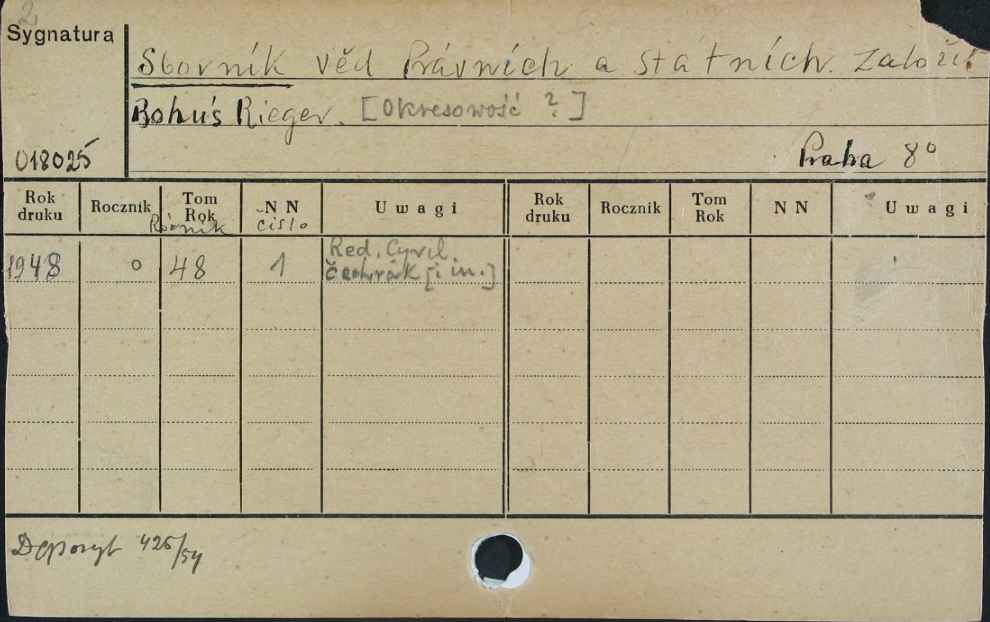 2
Sygnatura
Sborník věd Právních a státních. Založil
Bohuš Rieger. [Okresowość ?]
018025
Praha 8°
Rok druku Rocznik Tom Rok N N Uwagi Rok druku Rocznik Tom Rok N N Uwagi
Ročník číslo
1948 0 48 1 Red. Cyril
Čechrák [i in.]
Depozyt 425/54